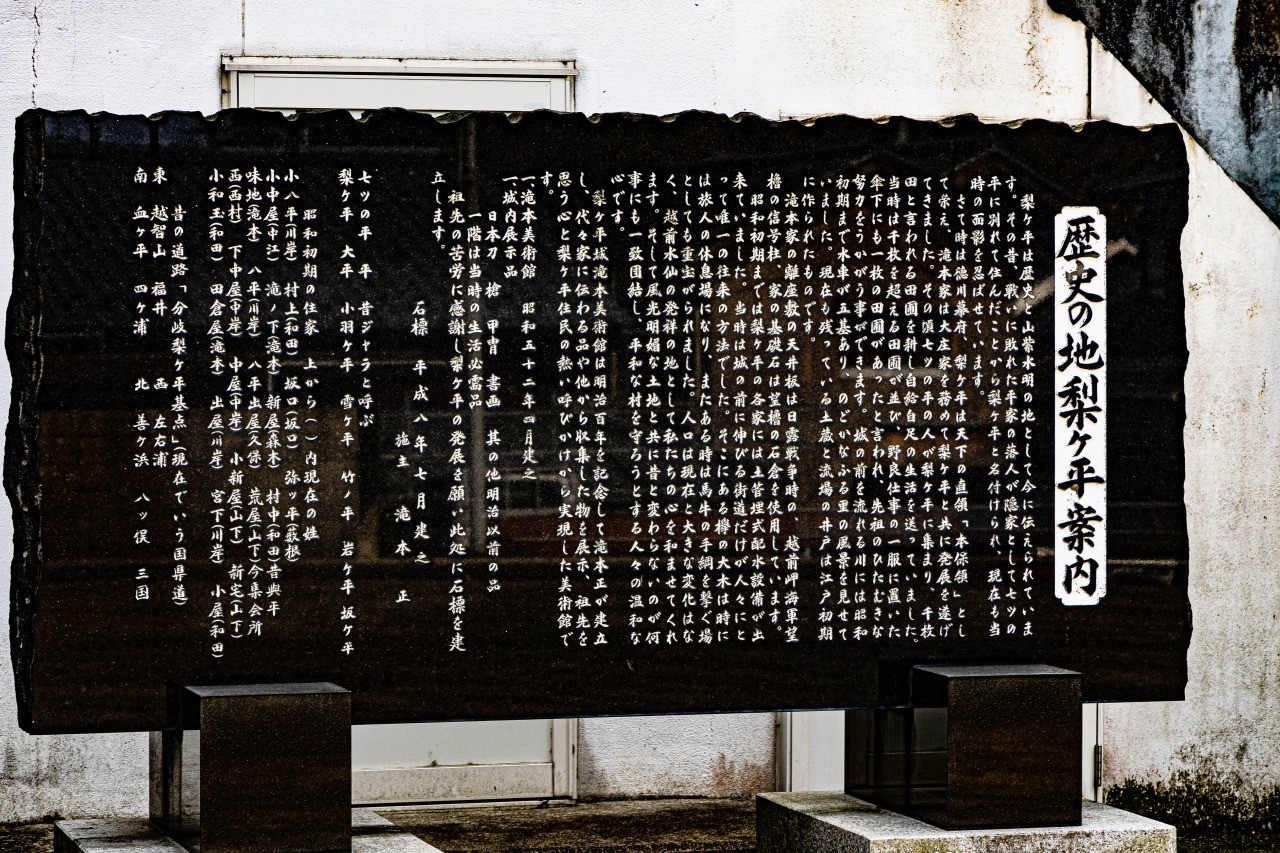 歴史の地梨ヶ平案内
梨ヶ平は歴史と山紫水明の地として今に伝えられていま
す。その昔、戦いに敗れた平家の落人が隠家として七ツの
平に別れて住んだことから梨ヶ平と名付けられ、現在も当
時の面影を忍ばせています。
さて時は徳川幕府、梨ヶ平は天下の直領「本保領」とし
て栄え、滝本家は大庄家を務めて梨ヶ平と共に発展を遂げ
てきました。その頃七ツの平の人が梨ヶ平に集まり、千枚
田と言われる田圃を耕し自給自足の生活を送っていました。
当時は千枚を超える田圃が並び、野良仕事の一服に置いた
傘下にも一枚の田圃があったと言われ、先祖のひたむきな
努力をうかがう事ができます。城の前を流れる川には昭和
初期まで水車が五基あり、のどかなふる里の風景を見せて
いました。現在も残っている土蔵と流場の井戸は江戸初期
に作られたものです。
滝本家の離座敷の天井板は日露戦争時の、越前岬海軍望
楼の信号柱、家の基礎石は望楼の石倉を使用しています。
昭和初期までは梨ヶ平の各家には土管埋式配水設備が出
来ていました。当時は城の前に伸びる街道だけが人々にと
って唯一の往来の方法でした。そこにある欅の大木は時に
は旅人の休息場になり、またある時は馬牛の手綱を撃ぐ場
としても重宝がられました。人口は現在と大きな変化はな
く、越前水仙の発祥の地として私たちの心を和ませてくれ
ます。そして風光明媚な土地と共に昔と変わらないのが何
事にも一致団結し、平和な村を守ろうとする人々の温和な
心です。
梨ヶ平城滝本美術館は明治百年を記念して滝本正が建立
し、代々家に伝わる品や他から収集した物を展示、祖先を
思う心と梨ヶ平住民の熱い呼びかけから実現した美術館で
す。
一滝本美術館 昭和五十二年四月建之
一城内展示品
日本刀 槍 甲冑 書画 其の他明治以前の品
一階は当時の生活必需品
祖先の苦労に感謝し梨ヶ平の発展を願い此処に石標を建
立します。
石標 平成八年七月建之
施主 滝本 正
七ツの平 平 昔ジャラと呼ぶ
梨ヶ平 大平 小羽ヶ平 雪ヶ平 竹ノ平 岩ヶ平 坂ヶ平
昭和初期の住家 上から( )内現在の姓
小八平(川岸) 村上(和田) 坂口(坂口) 弥ッ平(薮根)
小中屋(中江) 滝ノ下(滝本) 新屋(森木) 村中(和田)昔與平
味地(滝本) 八平(川岸) 八平出屋(久保) 荒屋(山下)今集会所
西(西村) 下中屋(中岸) 中屋(中岸) 小新屋(山下) 新宅(山下)
小和玉(和田) 田倉屋(滝本) 出屋(川岸) 宮下(川岸) 小屋(和田)
昔の道路「分岐梨ヶ平基点」(現在でいう国県道)
東 越智山 福井 西 左右浦
南 血ヶ平 四ヶ浦 北 善ヶ浜 八ッ俣 三国